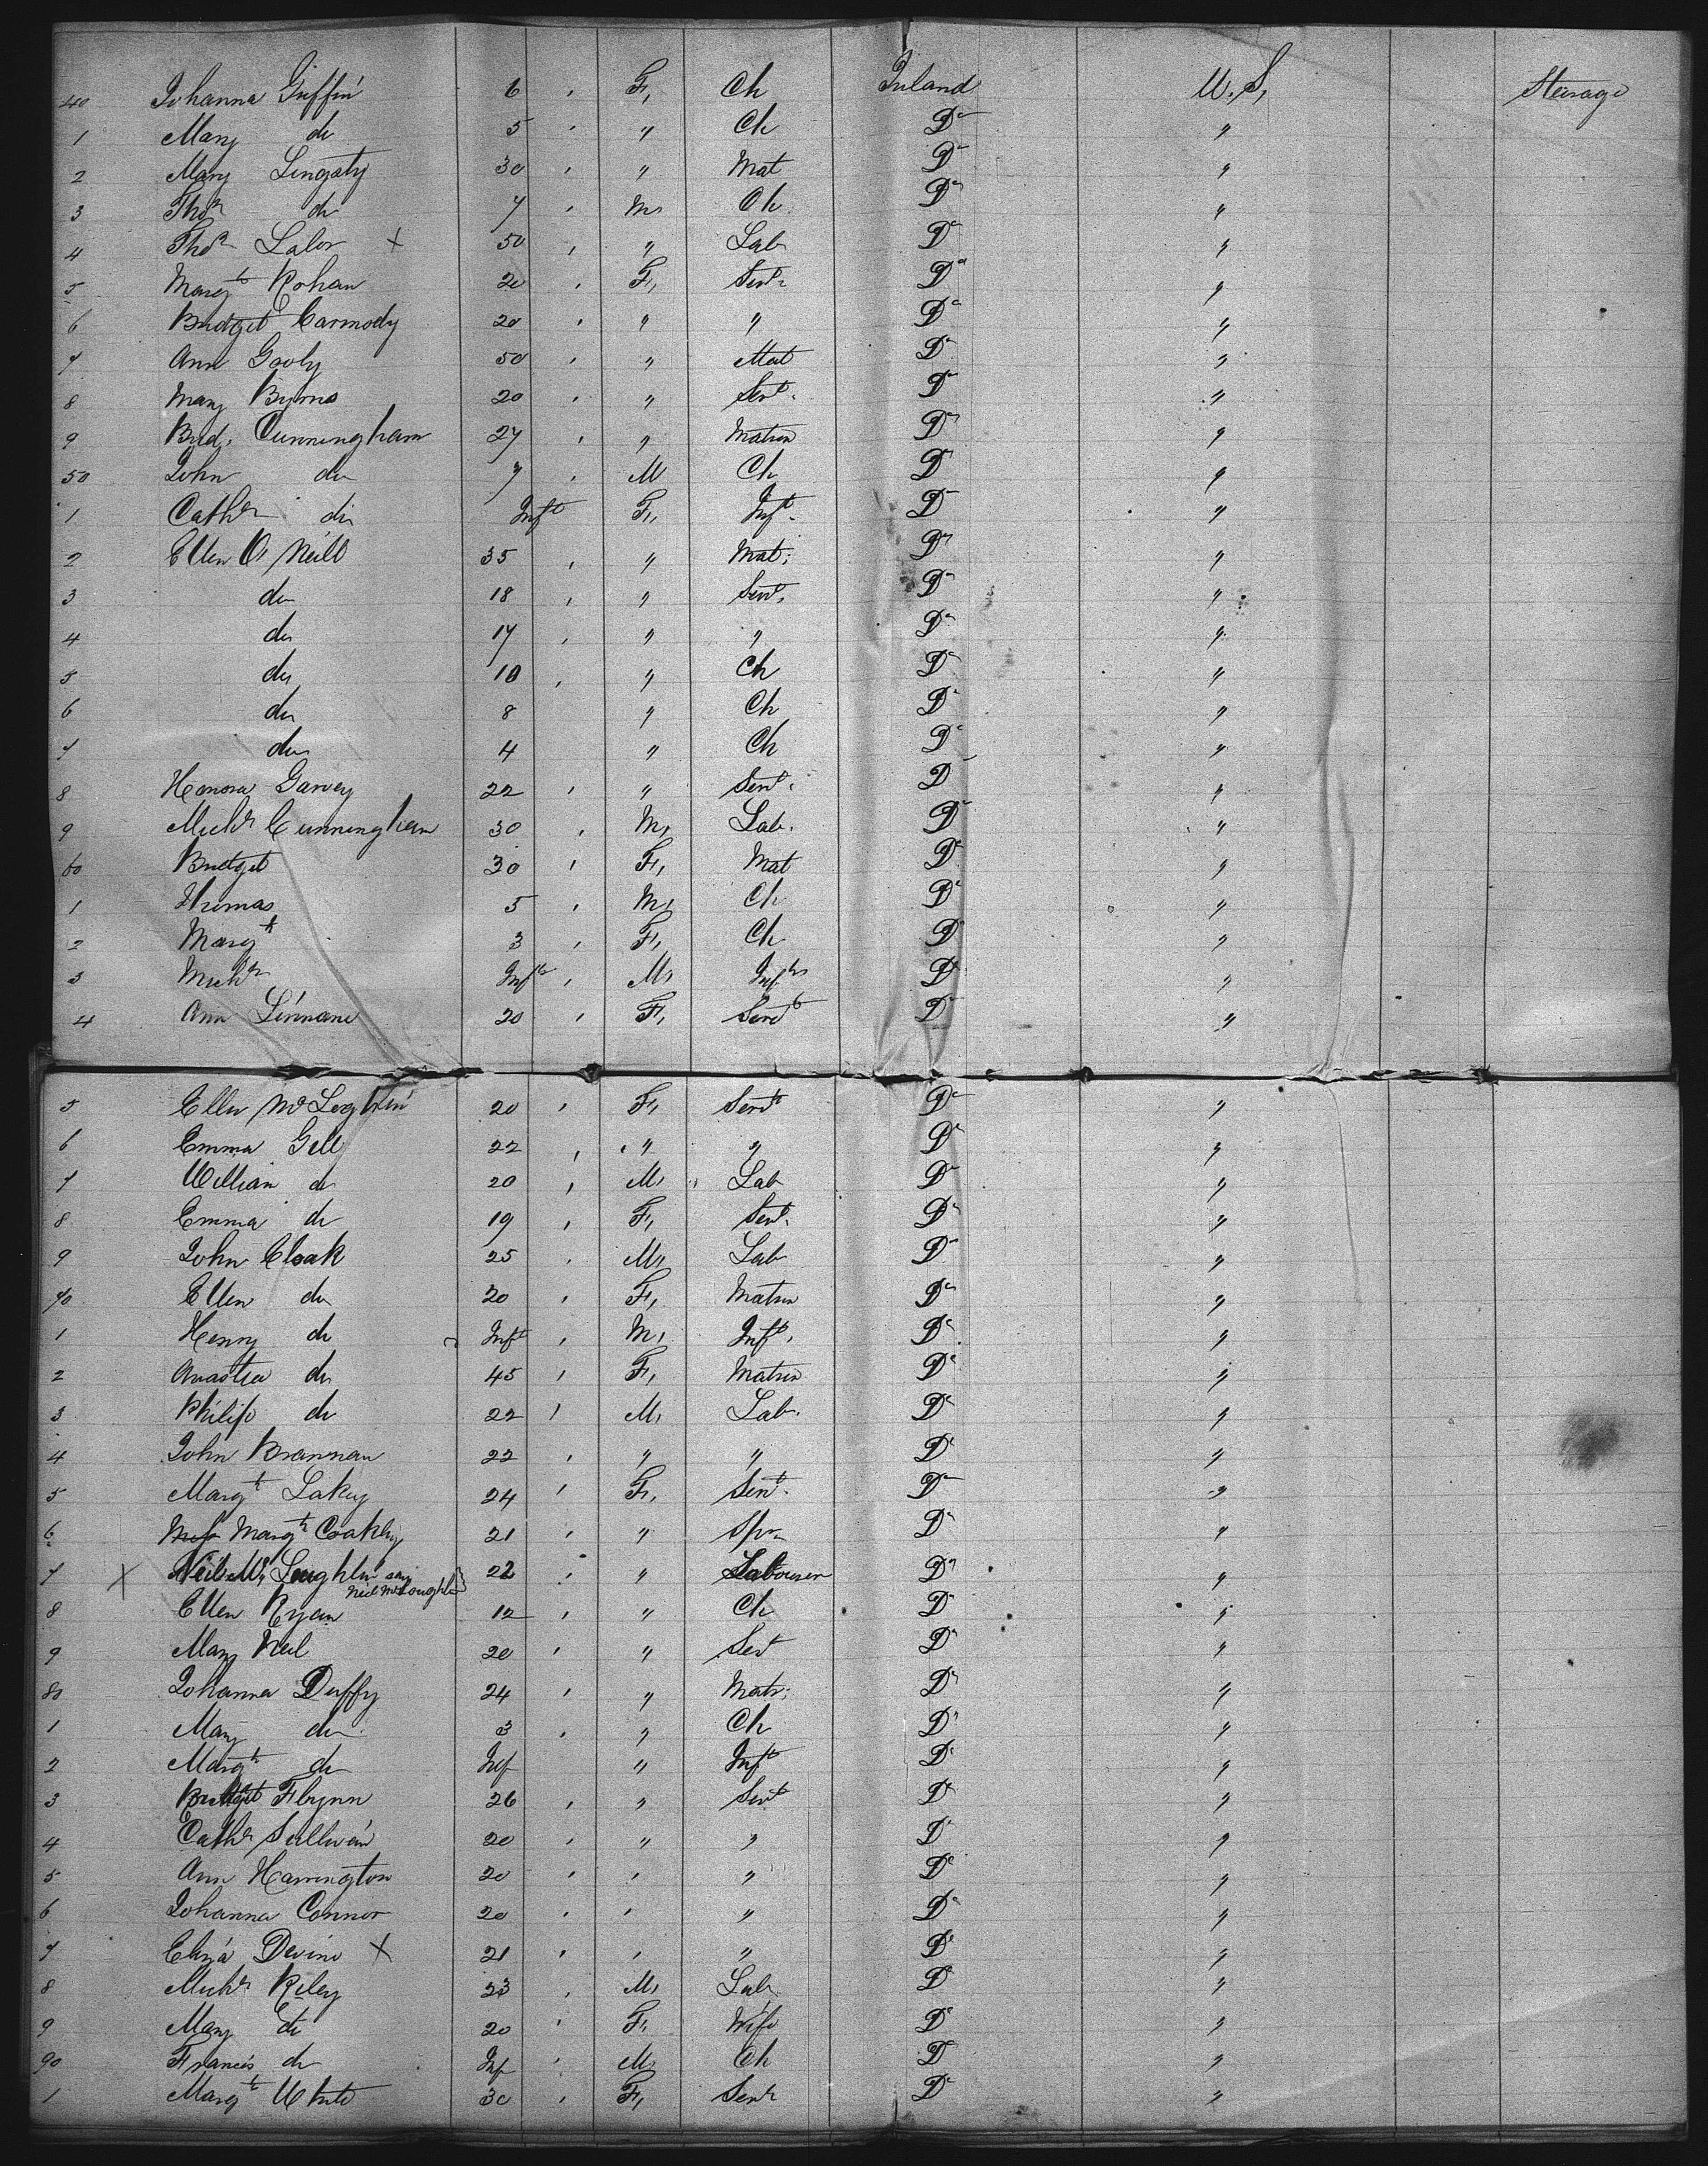 40 Johanna Griffin 6 F, Ch Ireland U.S, Steerage
1 Mary do 5 " Ch Do "
2 Mary 30 " Mat Do "
3 Thos do 7 M, Ch Do "
4 Thos Lalor × 50 " Lab Do "
5 Margt Rohan 20 F, Servt Do "
6 Bridget Carmody 20 " " Do "
7 Ann 50 " Mat Do "
8 Mary Byrns 20 " Servt Do "
9 Brid. Cunningham 27 " Matron Do "
50 John do 7 M Ch Do "
1 Cathe do Inft F, Inft Do "
2 Ellen O, Neill 35 " Mat: Do "
3 do 18 " Servt Do "
4 do 17 " " Do "
5 do 10 " Ch Do "
6 do 8 " Ch Do "
7 do 4 " Ch Do "
8 Honora Garvey 22 " Servt Do "
9 Michl Cunningham 30 M, Lab. Do "
60 Bridget 30 F, Mat Do "
1 Thomas 5 M, Ch Do "
2 Margt 3 F, Ch Do "
3 Michl Inft M, Inft Do "
4 Ann Linnane 20 F, Servt Do "
5 Ellen McLoghlin 20 F, Servt Do "
6 Emma Gell 22 " " Do "
7 William do 20 M, Lab Do "
8 Emma do 19 F, Servt Do "
9 John Cloak 25 M, Lab Do "
70 Ellen do 20 F, Matron Do "
1 Henry do Inft M, Inft, Do "
2 Anastia do 45 F, Matron Do "
3 Philip do 22 M, Lab. Do "
4 John Brannan 22 " " Do "
5 Margt Lakey 24 F, Servt Do "
6 Miss Margt Coakley 21 " Spr Do "
7 × Neil Mc Loughlin 22 " Labourer Do "
Neil McLoughlin
8 Ellen Ryan 12 " Ch Do "
9 Mary Neil 20 " Servt Do "
80 Johanna Duffy 24 " Matr: Do "
1 Mary do 3 " Ch Do "
2 Margt do Inf " Inft Do "
3 Bridget Flynn 26 " Servt Do "
4 Cathe Sullivan 20 " " Do "
5 Ann Harrington 20 ' " Do "
6 Johanna Connor 20 ' " Do "
7 Eliza Devine × 21 ' " Do "
8 Michl Riley 23 M, Lab Do "
9 Mary do 20 F, Wife Do "
90 Francis do Inf M, Ch Do "
1 Margt White 30 F, Servt Do "